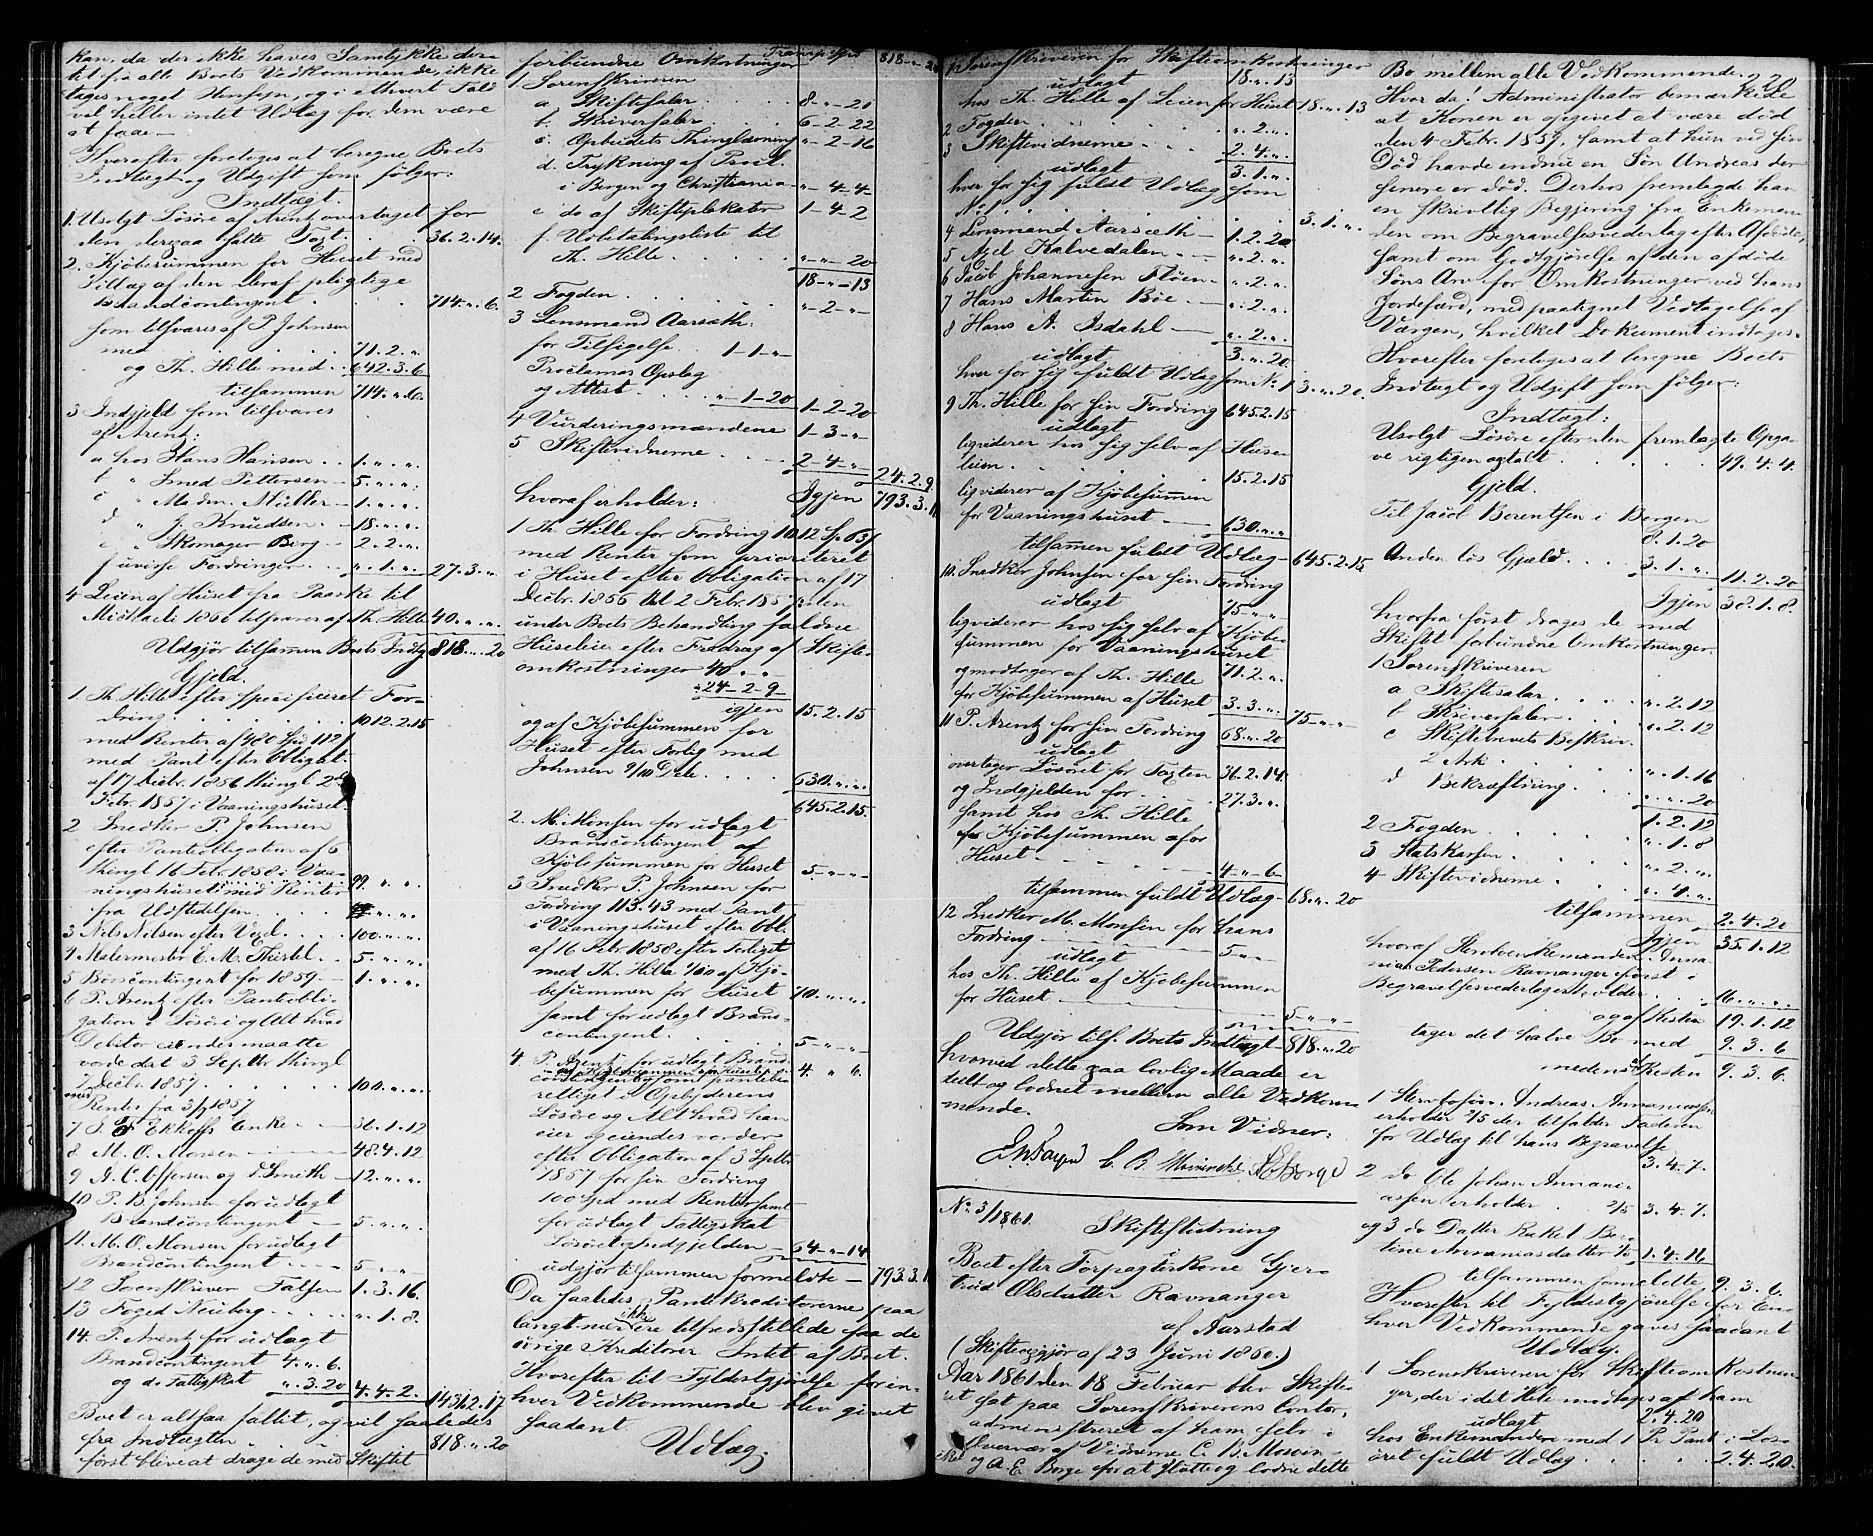 kan, da der ikke haves Samtykke der-
til fra alle Boets Vedkommende, ikke
tages noget Hensyn, og i ethvert Fald
vil heller intet Udlæg for dem være
at faae.
Hvorefter foretoges at beregne Boets
Indtægt og Udgift som følger:
Indtægt.
1. Usolgt Løsøre af Arentz overtaget for
den derpaa satte Taxt . 36.2.14.
2. Kjøbesummen for Huset med
Tillæg af den deraf pligtige
Brandcontingent . . . 714.„.6.
som tilsvares af P. Johnsen
med . . . 71.2.„.
og Th. Hille med . 642.3.6
tilsammen 714.„.6.
3 Indgjeld som tilsvares
af Arentz:
a hos Hans Hansen . . 1.„.„.
b „ Smed Pettersen . 5.„.„.
c „ Madm. Müller . 1.„.„.
d „ J. Knudsen . . 18.„.„.
e „ Skomager Berg . 2.2.„.
f uvisse Fordringer . . „.1.„. 27.3.„.
4 Leien af Huset fra Paaske til
Michaeli 1860 tilsvares af Th. Hille 40.„.„.
Udgjør tilsammen Boets Indtægt 818.„.20
Gjeld.
1 Th. Hille efter specificeret For-
dring . . . 1012.2.15
med Renter af 480 Spd 112 ß
med Pant efter Obligat.
af 17 Decbr. 1856 thingl. 2den
Febr. 1857 i Vaaningshuset
2 Snedker P. Johnsen
efter Panteobligation af 6
thingl 16 Febr. 1858 i Vaa-
ningshuset med Renter 99.„.„.
fra Udstedelsen . . .
3 Nils Nilsen efter Vexel . . 100.„.„.
4 Malermester E. M. Thistel . 5.„.„.
5 Børscontingent for 1859 1.„.„.
6 P. Arentz efter Panteobli-
gation i Løsøre og Alt hvad
Debitor eiendes maatte
vorde dat 3 Septbr thingl
7 Decbr. 1857 . . . 100.„.„.
med
Renter fra 3/9 1857
7 Ekhoffs Enke 36.1.12
8 M. O. Monsen 48.4.12
9 A. C. Offersen og d. Smith 12.„.„.
10 P. B. Johnsen for udlagt
Brandcontingent 5.„.„.
11. M. O. Monsen for udlagt
Brandcontingent 5 „ „
12 Sorenskriver Falsen 1.3.16.
13 Foged Neuberg . . „.1.8.
14. P. Arentz for udlagt
Brandcontingent 4.„.6.
og do Fattigskat „.3.20 4.4.2. 1431.2.17
Boet er altsaa fallit, og vil saaledes
fra Indtægten . . . 818.„.20
først blive at drage de med Skiftet
forbundne Omkostninger Transp. Spd 818.„.20
1 Sorenskriveren
a. Skiftesalær . . 8-„-20
b. Skriversalær . 6-2-22
c. Opbudets Thinglæsning „-2-16
d. Trykning af Procl.
i Bergen og Christiania „-4-4
e do af Skifteplakater 1-4-2
f. Udbetalingsliste til
Th. Hille . . . . „-„-20
18-„-13
2 Fogden . . . . „-2-„
3 Lensmand Aarsæth:
for Tilsigelse . . 1-1-„
Proclamas Opslag
og Attest . . . „-1-20 1-2-20
4 Vurderingsmændene 1-3-„
5 Skiftevidnerne . . . 2-4-„ 24.2.9
Igjen 793.3.11
hvoraf erholder:
1 Th. Hille for Fordring 1012 Sp 63 ß
med Renter som prioriteret
i Huset efter Obligation af 17
Decbr. 1856 tl 2 Febr. 1857 den
under Boets Behandling faldne
Huseleie efter Fradrag af Skifte-
omkostninger 40 „ „
÷ 24-2-9
igjen 15.2.15
og af Kjøbesummen for
Huset efter Forlig med
Johnsen 9/10 Dele . . . 630.„.„.
645.2.15.
2. M. Monsen for udlagt
Brandcontingent af
Kjøbesummen for Huset 5-„-„
3 Snedker P. Johnsen for
Fordring 113.43 med Pant
i Vaaningshuset efter Obl.
af 16 Febr 1858 efter Forliget
med Th. Hille 1/10 af Kjø-
besummen for Huset 70.„.„.
samt for udlagt Brand-
contingent . . . 5-„-„
4 P. Arentz for udlagt Brand-
contingent af Kjøbesummen for Huset 4.„.6.
som panteberettiget i Opbyderens
Løsøre og Alt hvad han
eier og eiendes vorder
efter Obligation af 3 Septbr
1857 for sin Fordring
100 Spd med Renter samt
for udlagt Fattigskat
Løsøret og Indgjelden 64-„-14
udgjør tilsammen formeldte 793.3.11
Da saaledes Pantekreditorerne paa
langt nær ikke ere tilfredsstillede faa de
øvrige Kreditorer Intet af Boet.
Hvorefter til Fyldestgjørelse for en-
hver Vedkommende blev givet
saadant
Udlæg:
1 Sorenskriveren for Skifteomkostninger
18.„.13
udlagt
hos Th. Hille af Leien for Huset 18.„.13
2 Fogden . . . . „.2.„.
3 Skiftevidnerne . . . 2.4.„.
udlagt 3.1.„.
hver for sig fuldt Udlæg som
No 1 . . . . . 3.1.„.
4 Lensmand Aarsæth 1.2.20
5 Axel Kalvedalen . „.2.„.
6 Jacob Johannesen Fløen „.2.„.
7 Hans Martin Bøe „.2.„.
8 Hans A. Isdahl „.2.„.
udlagt 3.„.20.
hver for sig fuldt Udlæg som No 1 3.„.20.
9 Th. Hille for sin Fordring 645.2.15
udlagt
liqviderer hos sig selv af Huse-
leien . . . . 15.2.15
liqviderer af Kjøbesummen
for Vaaningshuset 630.„.„
tilsammen fuldt Udlæg 645.2.15
10. Snedker Johnsen for sin Fordring
udlagt 75-„-„
liqviderer hos sig selv af Kjøbe-
summen for Vaaningshuset
71.2.„.
og modtager af Th. Hille
for Kjøbesummen af Huset 3.3.„. 75-„-„
11 P. Arentz for sin Fordring 68.„.20
udlagt
overtager Løsøret for Taxten 36.2.14.
og Indgjelden for . . 27.3.„.
samt hos Th. Hille
af Kjøbesummen for
Huset 4-„-6-
tilsammen fuldt Udlæg 68.„.20
12 Snedker M. Monsen for hans
Fordring 5-„-„
udlagt
hos Th. Hille af Kjøbesummen
for Huset 5-„-„
Udgjør tils. Boets Indtægt 818.„.20
hvorved dette paa lovlig Maade er
deelt og lodnet mellem alle Vedkom-
mende.
Som Vidner:
No 3/1861.
Skifteslutning
i
Boet efter Forpagterkone Gjer-
trud Olsdatter Ravnanger
af Aarstad
(Skifteopgjør af 23 Juni 1860.)
Aar 1861 den 18 Februar blev Skifte-
ret sat paa Sorenskriverens Contor,
administreret af ham selv i
Overvær af Vidnerne C. B. Mowin-
ckel og A. E. Berge for at slutte og lodne dette
220
Bo mellem alle Vedkommende.
Hvor da! Administrator bemærkede
at Konen er opgivet at være død
den 4 Febr. 1857, samt at hun ved sin
Død havde endnu en Søn Andreas der
senere er død. Derhos fremlagde han
en skriftlig Begjering fra Enkeman-
den om Begravelsesvederlag efter Afdøde,
samt om Godtgjørelse af den afdøde
Søns Arv for Omkostninger ved hans
Jordefærd, med paategnet Vedtagelse af
Værgen, hvilket Dokument indtages.
Hvorefter foretoges at beregne Boets
Indtægt og Udgift som følger:
Indtægt:
Usolgt Løsøre efter den fremlagte Opga-
ve rigtigen optalt . . . 49.4.4.
Gjeld.
Til Jacob Berentsen i Bergen
8.1.20
Anden løs Gjeld . . . 3.1.„. 11.2.20
Igjen 38.1.8
hvorfra først drages de med
Skiftet forbundne Omkostninger.
1 Sorenskriveren
a Skiftesalær . . . „.2.12
b Skriversalær . . „.2.12
c Skiftebrevets Beskriv.
2 Ark . . . „.1.16
d Bekræftning . . „.„.20
1.2.12
2 Fogden . . . . „.1.8
3 Statskassen . . . „.2.„.
4 Skiftevidnerne . . „.4.„.
tilsammen 2.4.20
Igjen 35.1.12
hvoraf Enkemanden Anna-
nias Pedersen Ravnanger først i
Begravelsesvederlag erholder . 16.„.„.
og af Resten 19.1.12
tager det halve Bo med 9.3.6
medens af Resten 9.3.6.
1 Sterbosøn Andreas Annaniassen
erholder 2/5 der tilfalder Faderen
for Udlæg til hans Begravelse
3.4.7.
2 do Ole Johan Annani-
assen erholder 2/5 3.4.7.
og 3 do Datter Rakel Ber-
tine Annaniasdatter 1/5 1.4.16
tilsammen formeldte 9.3.6.
Hvorefter til Fyldestgjørelse for En-
hver Vedkommende gaves saadant
Udlæg.
1 Sorenskriveren for Skifteomkostnin-
ger, der i det Hele modtages af ham
2.4.20
udlagt
hos Enkemanden med 1 Pr Pant i Løs-
øret fuldt Udlæg . . . 2.4.20.